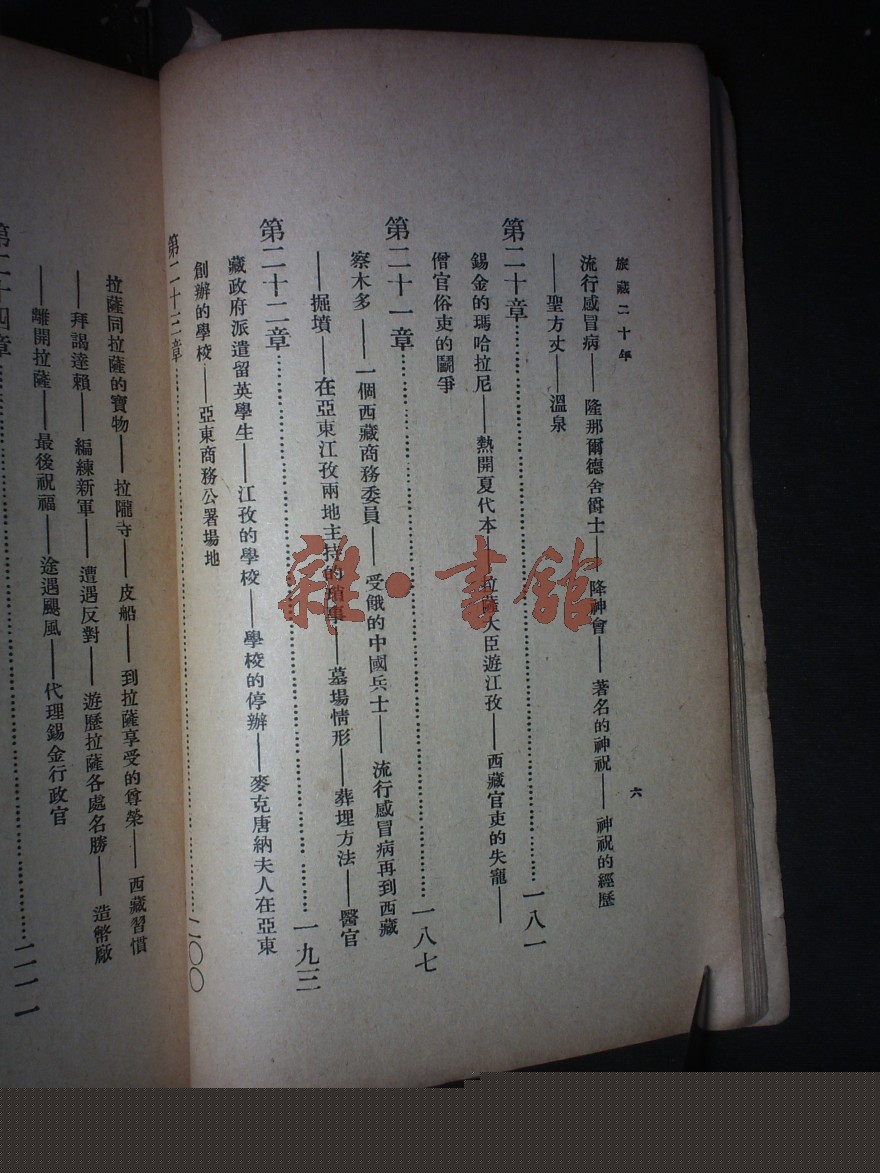 旅藏二十年
六
流行感冒病——隆那爾德舍爵士——降神會——著名的神祝——神祝的經歷
——聖方丈——溫泉
第二十章……一八一
錫金的瑪哈拉尼——熱開夏代本——拉薩大臣遊江孜——西藏官吏的失寵——
僧官俗吏的鬭爭
第二十一章……一八七
察木多——一個西藏商務委員——受餓的中國兵士——流行感冒病再到西藏
——掘墳——在亞東江孜兩地主持的瑣事——墓場情形——葬埋方法——醫官
第二十二章……一九三
藏政府派遣留英學生——江孜的學校——學校的停辦——麥克唐納夫人在亞東
創辦的學校——亞東商務公署場地
第二十三章……二〇〇
拉薩同拉薩的寶物——拉隴寺——皮船——到拉薩享受的尊榮——西藏習慣
——拜謁達賴——編練新軍——遭遇反對——遊歷拉薩各處名勝——造幣廠
——離開拉薩——最後祝福——途遇颶風——代理錫金行政官
第二十四章……二一一
雜·書館